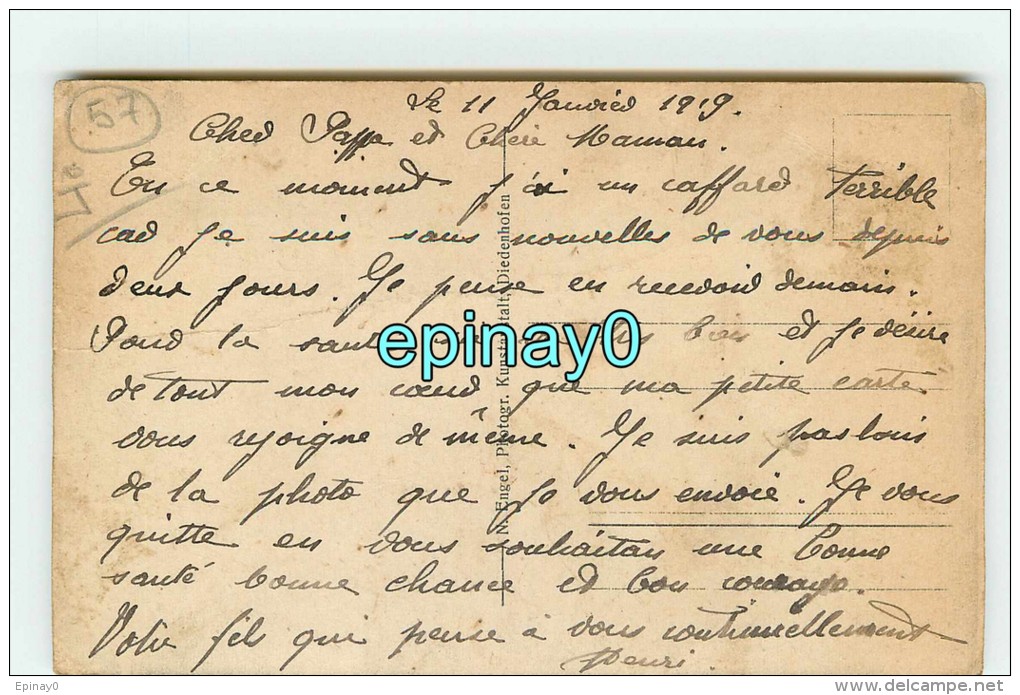 57
Le 11 Janvier 1919.
Cher Pappa et Chère Maman.
En ce moment j'ai un caffard terrible
car je suis sans nouvelles de vous depuis
deux jours. Je pense en recevoir demain.
Pour la santé bon et je désire
de tout mon cœur que ma petite carte
vous rejoigne de même. Je suis pas loin
de la photo que je vous envoie. Je vous
quitte en vous souhaitan une bonne
santé bonne chance et bon courage.
Votre fils qui pense à vous continuellement
Henri.
N. Engel, Photogr. Kunstanstalt, Diedenhofen
epinay0
Epinay0
delcampe.net